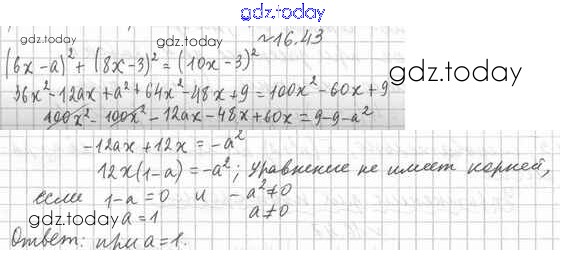 gdz.today
№16.43
(6x-a)² + (8x-3)² = (10x-3)²
36x²-12ax+a²+64x²-48x+9=100x²-60x+9
gdz.today
100x²-100x²-12ax-48x+60x=9-9-a²
-12ax+12x=-a²
12x(1-a)=-a²; уравнение не имеет корней,
если 1-a=0 и -a²≠0
gdz.today a=1 a≠0
Ответ: при a=1.